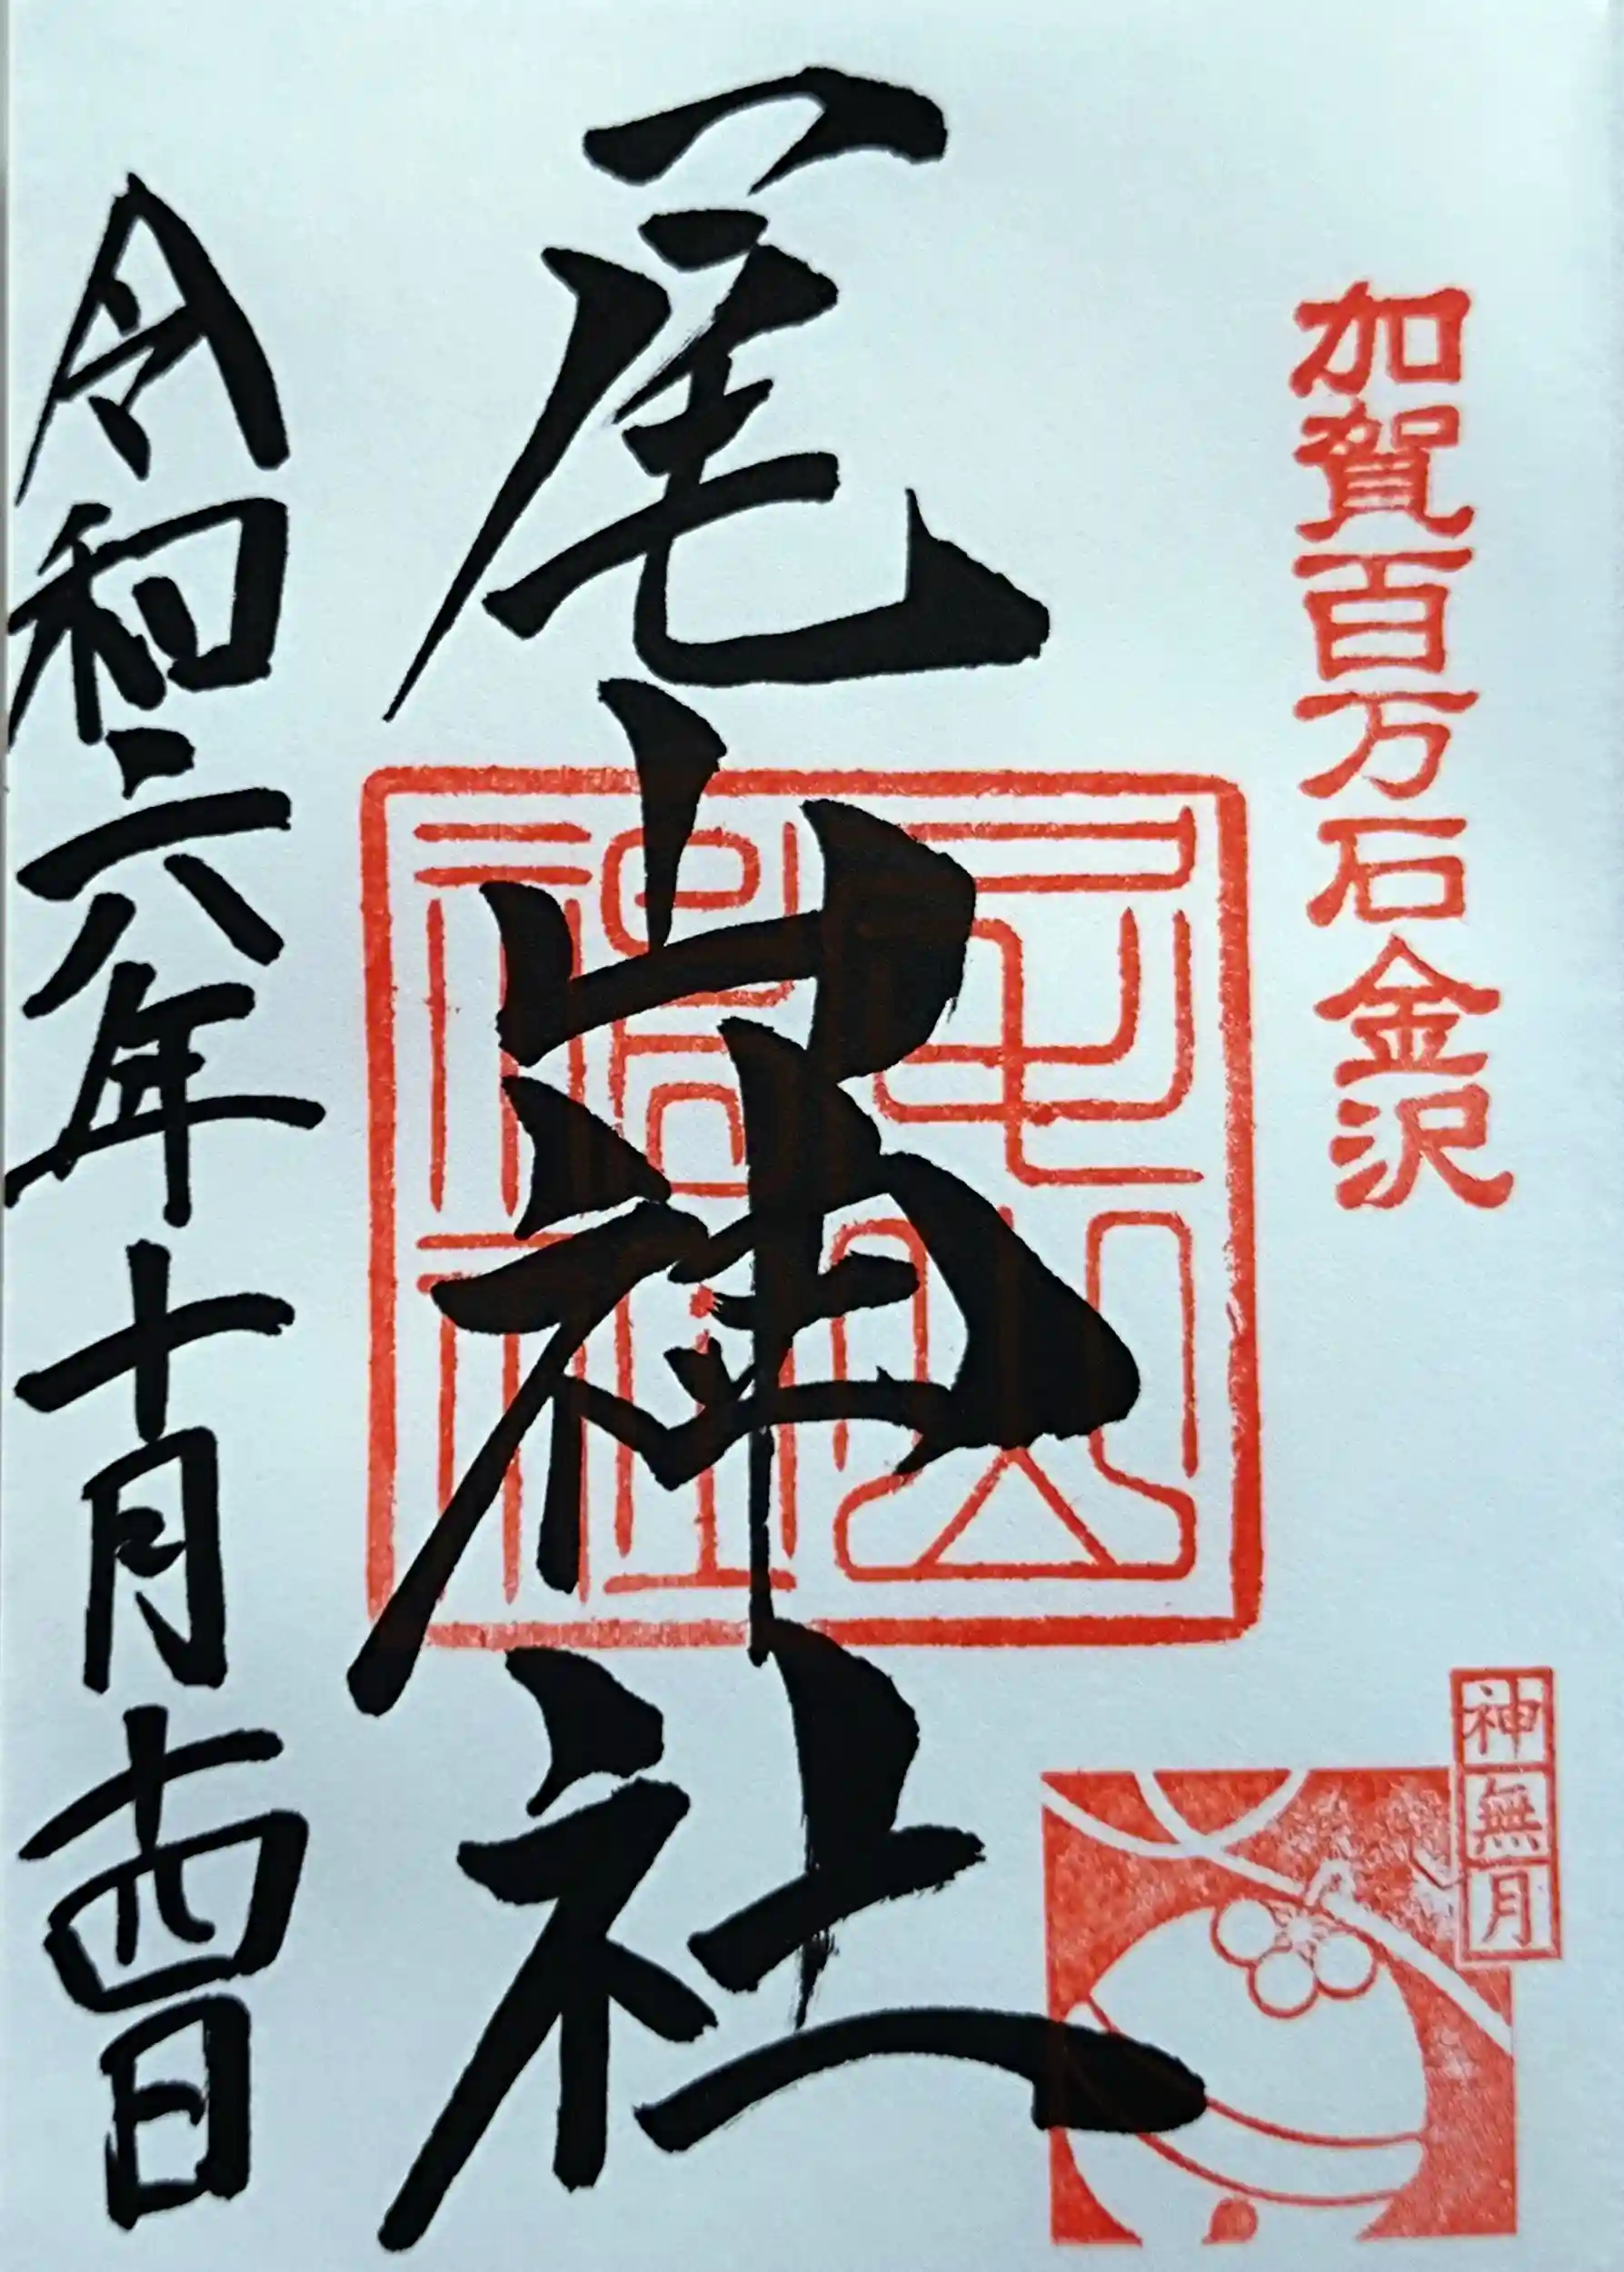 加賀百万石金沢
神無月
尾山神社
尾山神社
令和六年十月十四日